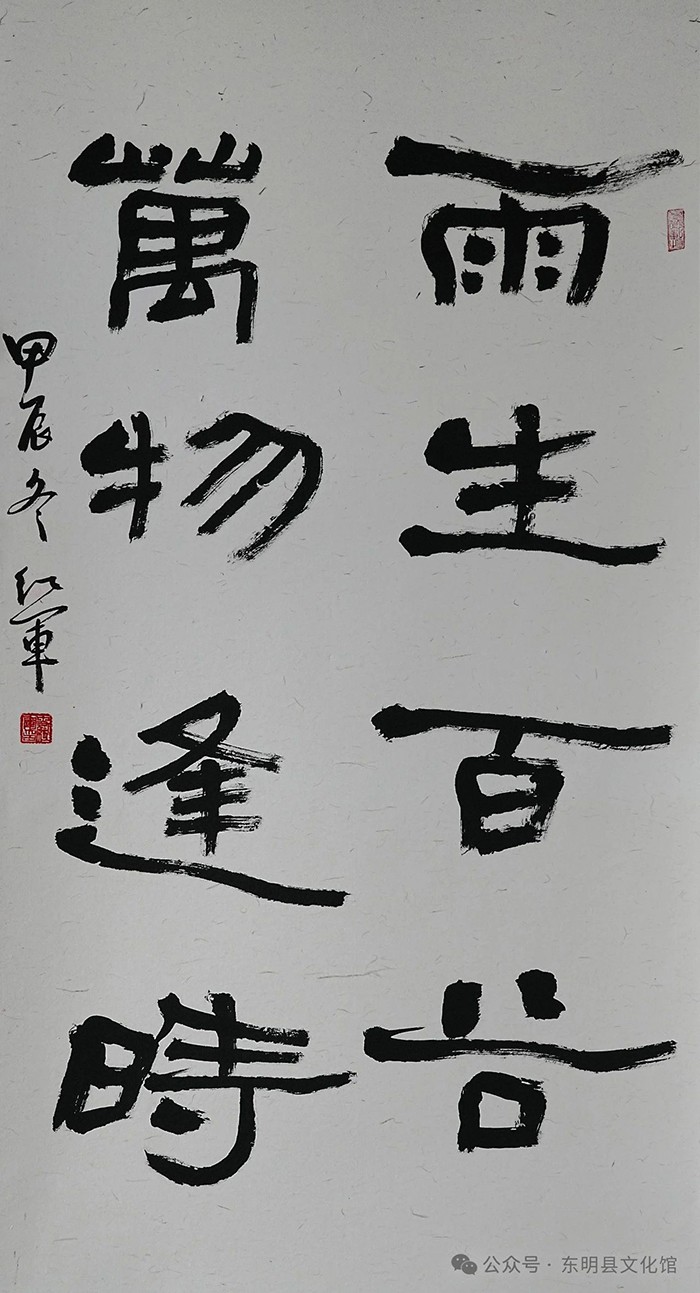 雨生百谷
萬物逢時
甲辰冬 紅軍
公众号 · 东明县文化馆